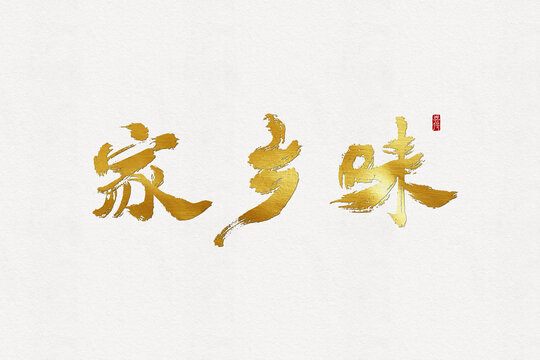 家乡味